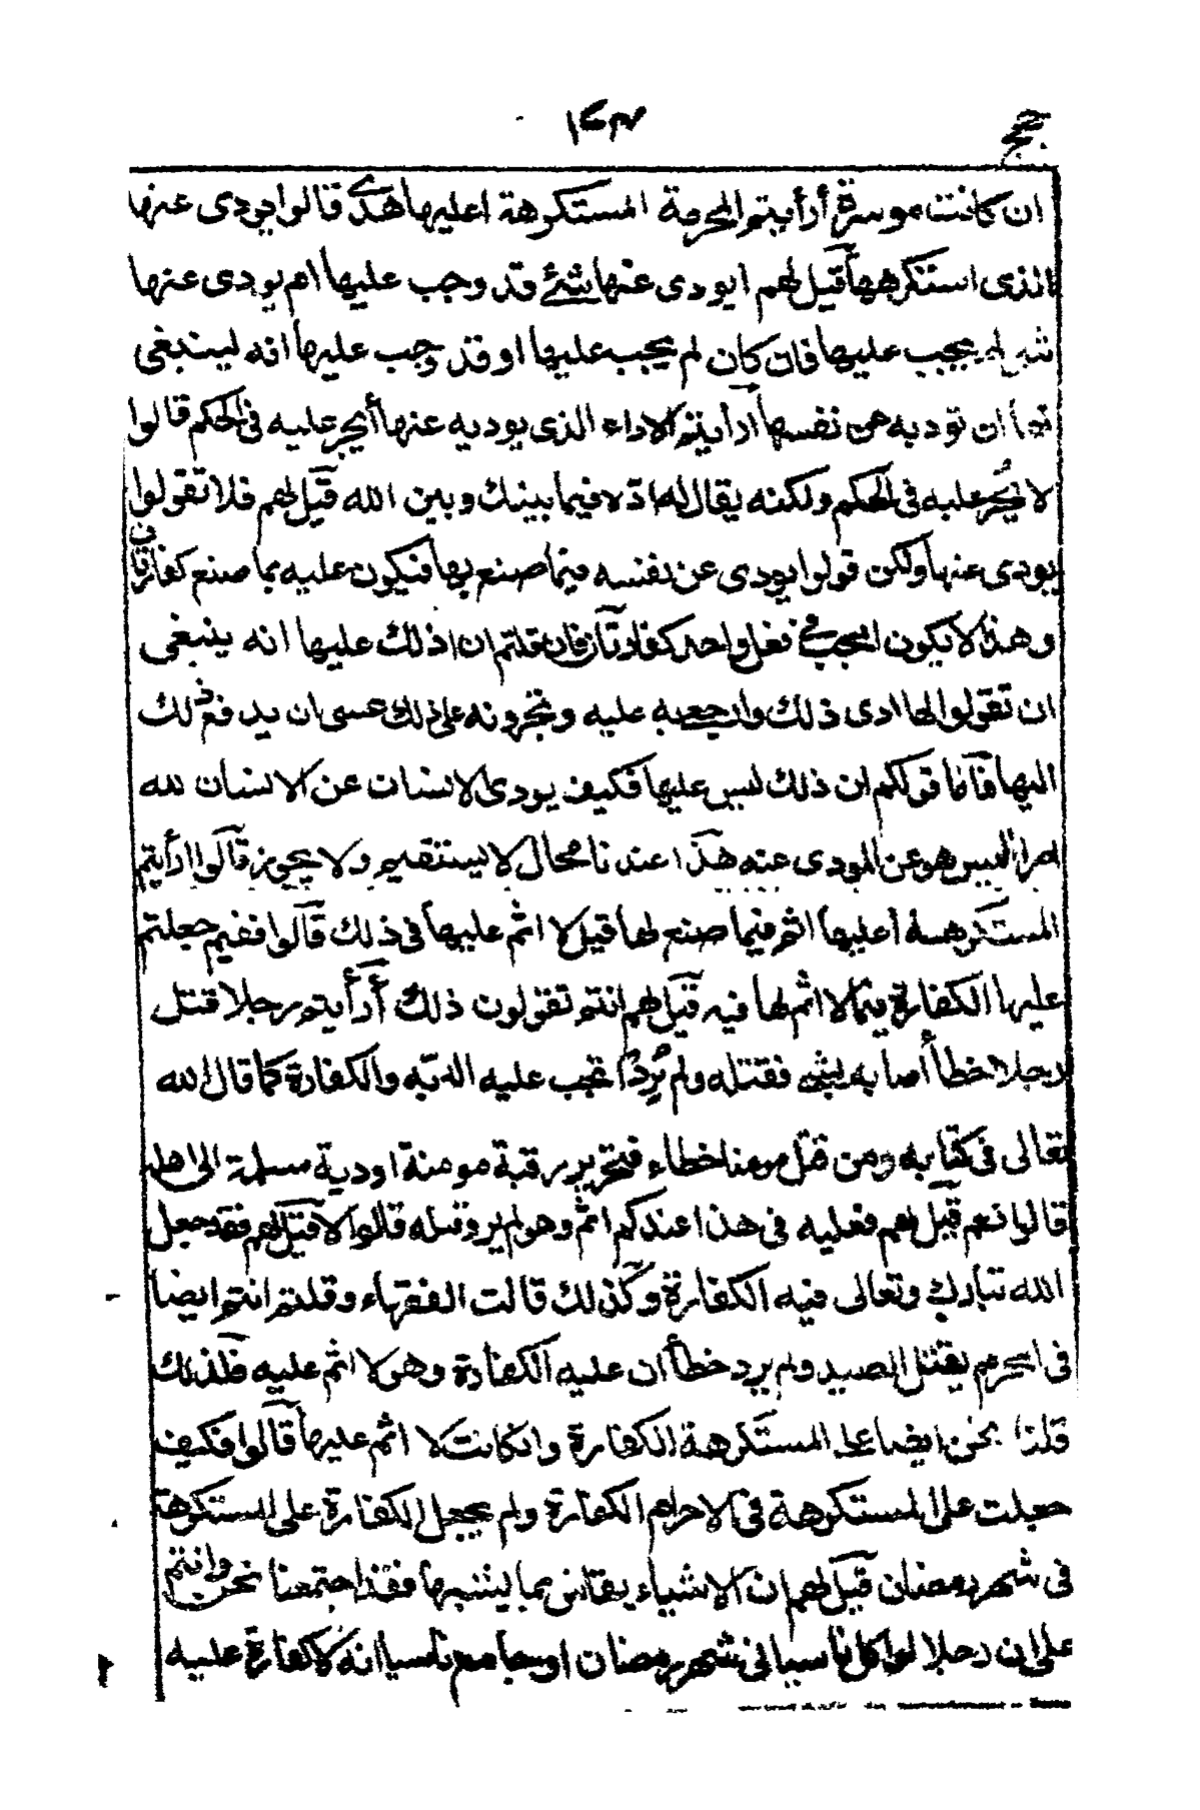 حجج
ان كانت موسرة أرأيتم المحرمة المستكرهة اعليها هدى قالوا يودى عنها
الذى استكرهها قيل لهم ايودى عنها شئ قد وجب عليها ام يودى عنها
شئ لم يجب عليها فان كان لم يجب عليها او قد وجب عليها انه لينبغى
لها ان توديه من نفسها ارأيتم الاداء الذى يوديه عنها أيجبر عليه فى الحكم قالوا
لا يجبر عليه فى الحكم ولكنه يقال له اده فيما بينك وبين الله قيل لهم فلا تقولوا
يودى عنها ولكن قولوا يودى عن نفسه فيما صنع بها فيكون عليه بما صنع كفارتان
وهذا لا يكون ايجب فى فعل واحد كفارتان فان قلتم ان ذلك عليها انه ينبغى
ان تقولوا لها ادى ذلك وارجعى به عليه وتجبرونه على ذلك عسى ان يدفع ذلك
اليها فاما قولكم ان ذلك ليس عليها فكيف يودى الانسان عن الانسان لله
امرا ليس هو عن المودى عنه هذا عندنا محال لا يستقيم ولا يجوز قالوا ارأيتم
المستكرهة أعليها اثم فيما صنع لها قيل لا اثم عليها فى ذلك قالوا ففيم جعلتم
عليها الكفارة فيما لا اثم لها فيه قيل لهم انتم تقولون ذلك أرأيتم رجلا قتل
رجلا خطأ أصابه بشئ فقتله ولم يرد اتجب عليه الدية والكفارة كما قال الله
تعالى فى كتابه ومن قتل مومنا خطاء فتحرير رقبة مومنة اودية مسلمة الى اهله
قالوا نعم قيل لهم فعليه فى هذا عندكم اثم وهو لم يرد قتله قالوا لا قيل لهم فقد جعل
الله تبارك وتعالى فيه الكفارة وكذلك قالت الفقهاء وقلتم انتم ايضا
فى المحرم يقتل الصيد ولم يرد خطأ ان عليه الكفارة وهو لا اثم عليه فلذلك
قلنا نحن ايضا على المستكرهة الكفارة وان كانت لا اثم عليها قالوا فكيف
جعلت على المستكرهة فى الاحرام الكفارة ولم يجعل الكفارة على المستكرهة
فى شهر رمضان قيل لهم ان الاشياء يقاس بما يشبهها فقد اجتمعنا نحن وانتم
على ان رجلا لو اكل ناسيا فى شهر رمضان او جامع ناسيا انه لا كفارة عليه